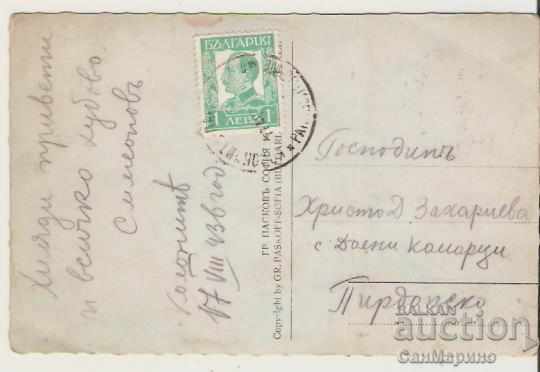 Хиляди приветы
и всичко хубаво.
Симеоновъ
17 VIII 936 год
БЪЛГАРИЯ
1 ЛЕВЪ 1
ГР. ПАСКОВЪ СОФИЯ
Copyright by GR. PASKOFF-SOFIA (BULGARIE)
Господинъ
Христо Д. Захариева
с Долни Камарци
Пирдопско
BALKAN
auction
СанМарино